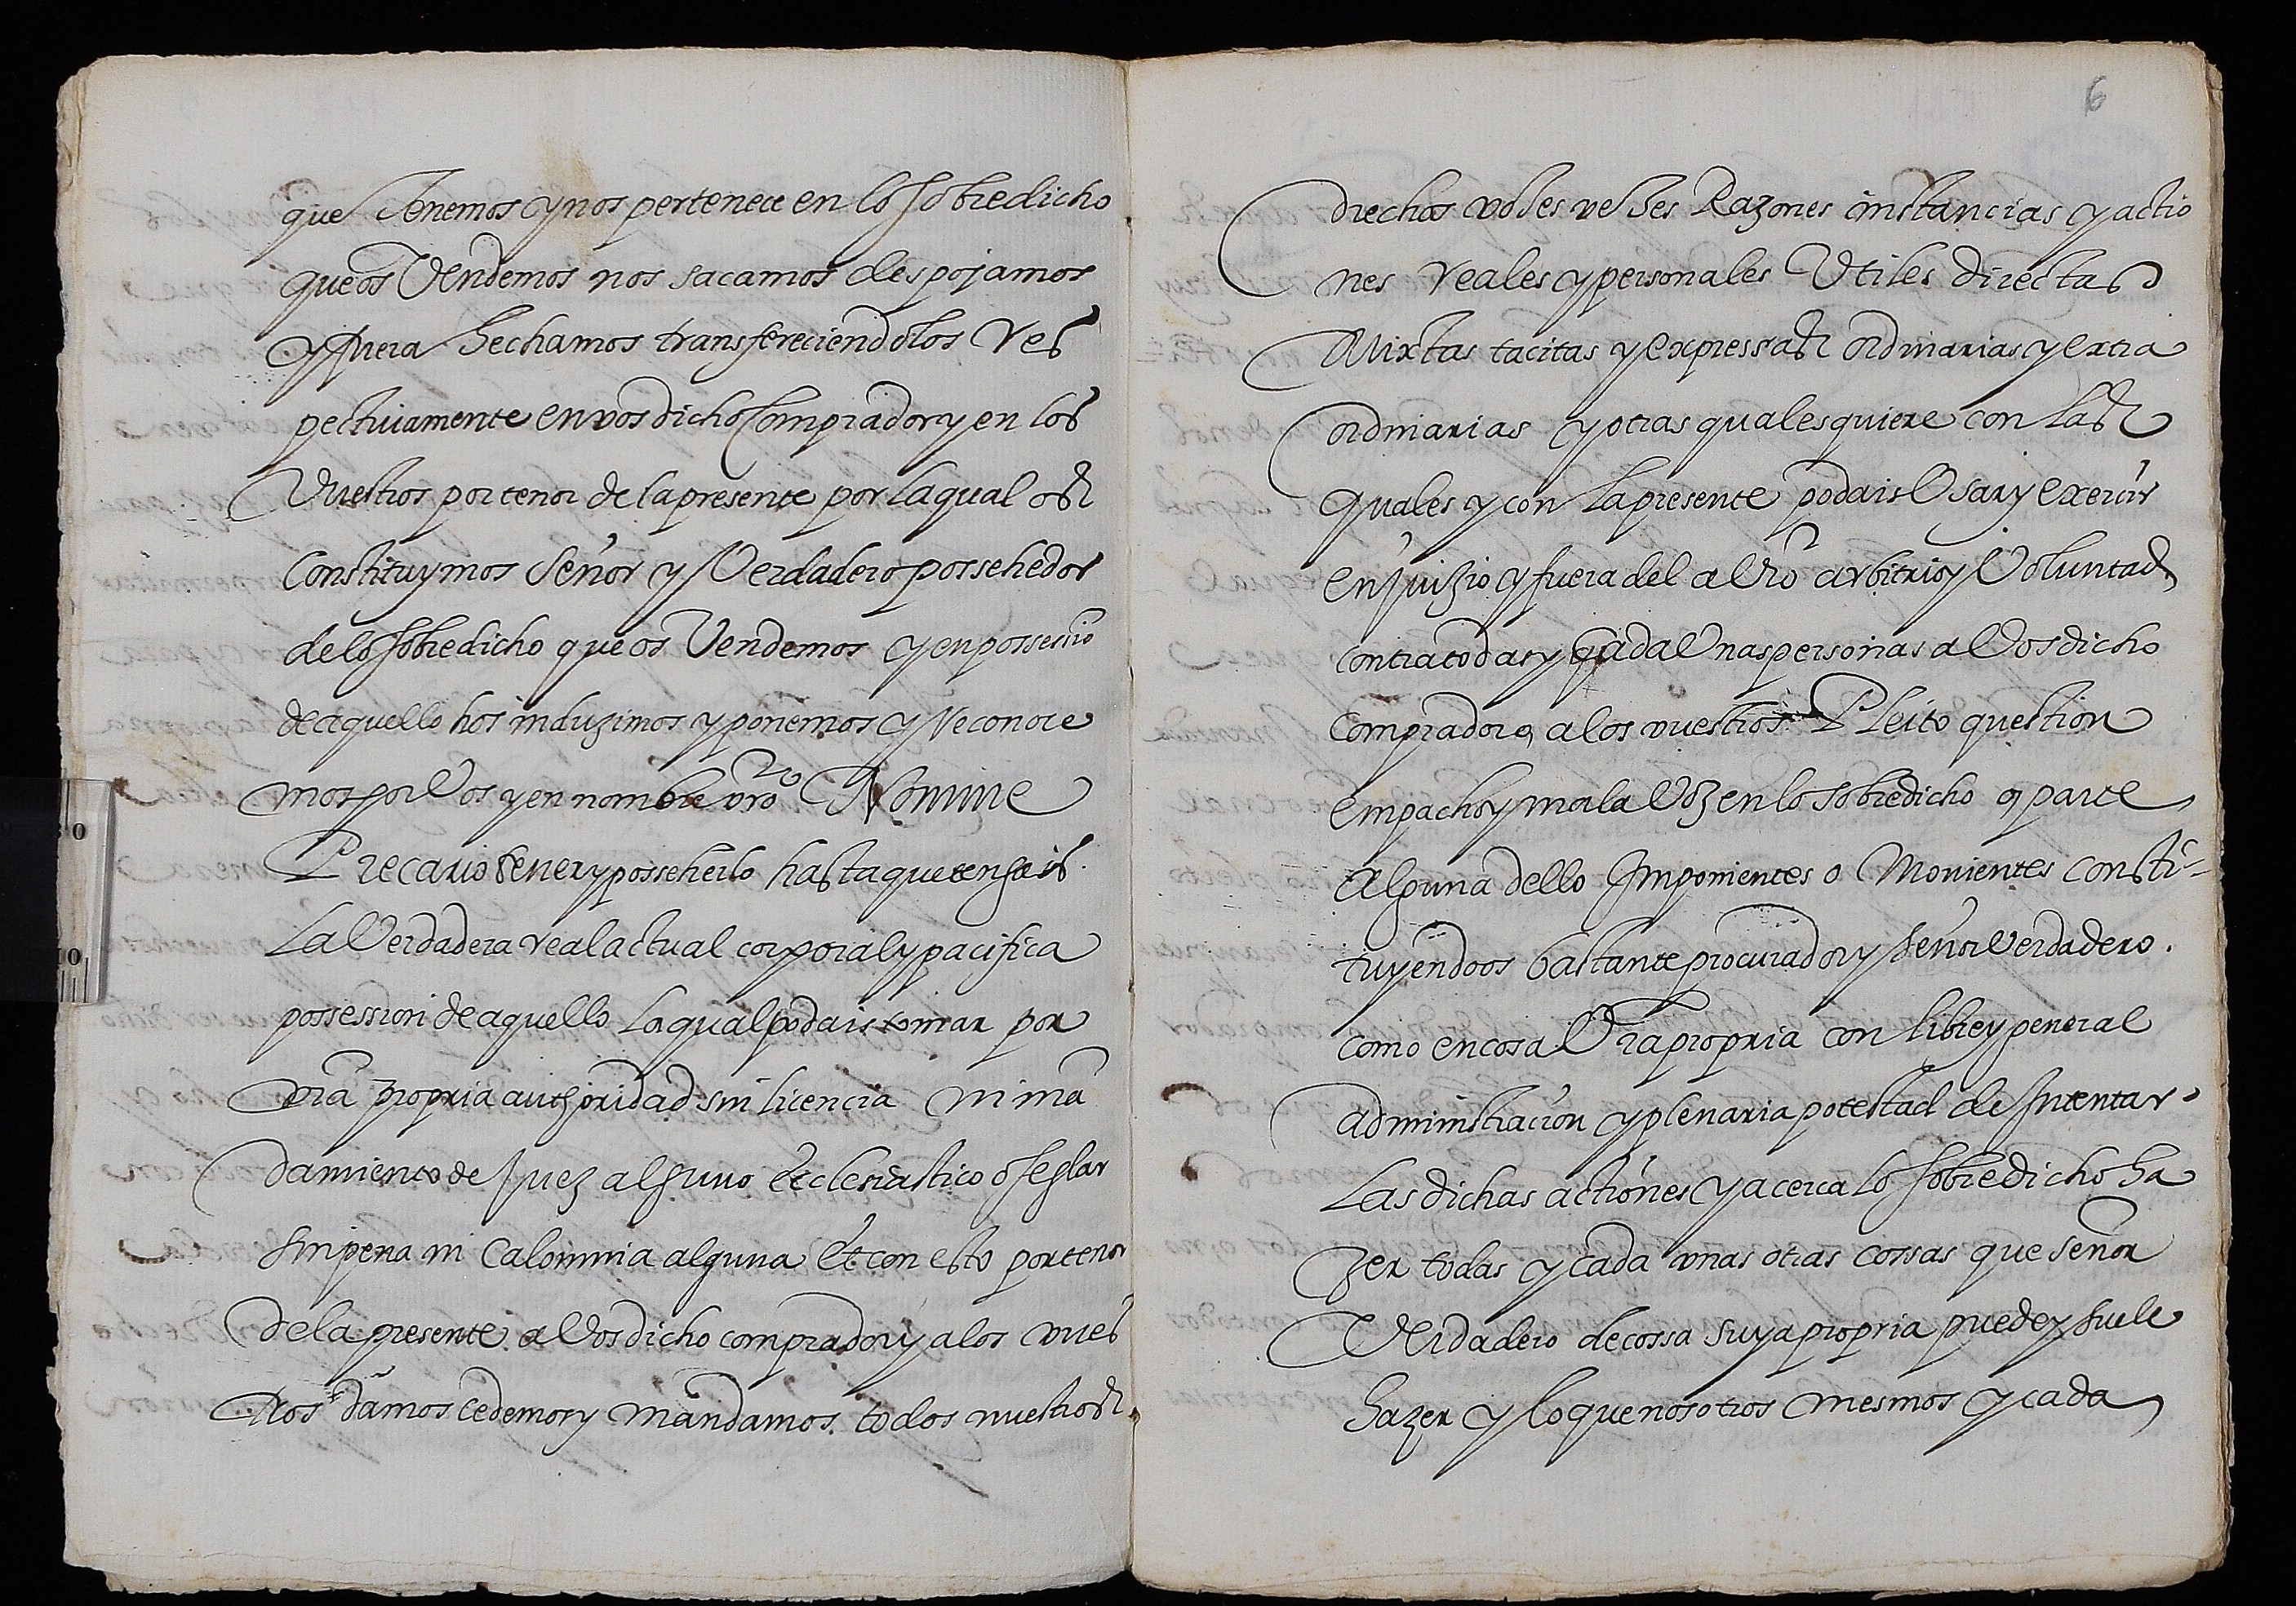 que tenemos y nos pertenece en lo sobredicho
que os Vendemos nos sacamos despojamos
y fuera hechamos transfereciendolos res
pectiuamente en vos dicho Comprador y en los
Vuestros por tenor de la presente por la qual os
Constituymos Señor y Verdadero possehedor
de lo sobredicho que os Vendemos y en possessiõ
de aquello hos induzimos y ponemos y Reconoce
mos por Vos y en nombre vrõ Nomine
Precario tener y posseherlo hasta que tengais
La Verdadera real actual corporal y pacifica
possession de aquello la qual podais tomar por
vrã propria authoridad sin licencia ni mã
damiento de Juez alguno Ecclesiastico o seglar
sin pena ni Calonmia alguna Et con esto por tenor
de la presente a Vos dicho comprador y a los vues
tros damos cedemos y mandamos todos nuestros
6
drechos vozes vezes Razones instancias y actio
nes reales y personales Vtiles directas
Mixtas tacitas y expressas ordinarias y extra
ordinarias y otras qualesquiere con las
quales y con la presente podais Vsar y exercir
en juizio y fuera del a Vrõ arbitrio y Voluntad
contra todas y cada Vnas personas a Vos dicho
comprador o a los vuestros Pleito question
empacho y mala Voz en lo sobredicho o parte
Alguna dello Imponientes o Mouientes consti-
tuyendoos bastante procurador y señor Verdadero.
como en cosa Vrã propria con libre y general
administracion y plenaria potestad de Intentar
Las dichas actiones y acerca lo sobredicho ha
zer todas y cada vnas otras cossas que señor
Verdadero de cossa suya propria puede y suele
hazer y lo que nosotros mesmos y cada